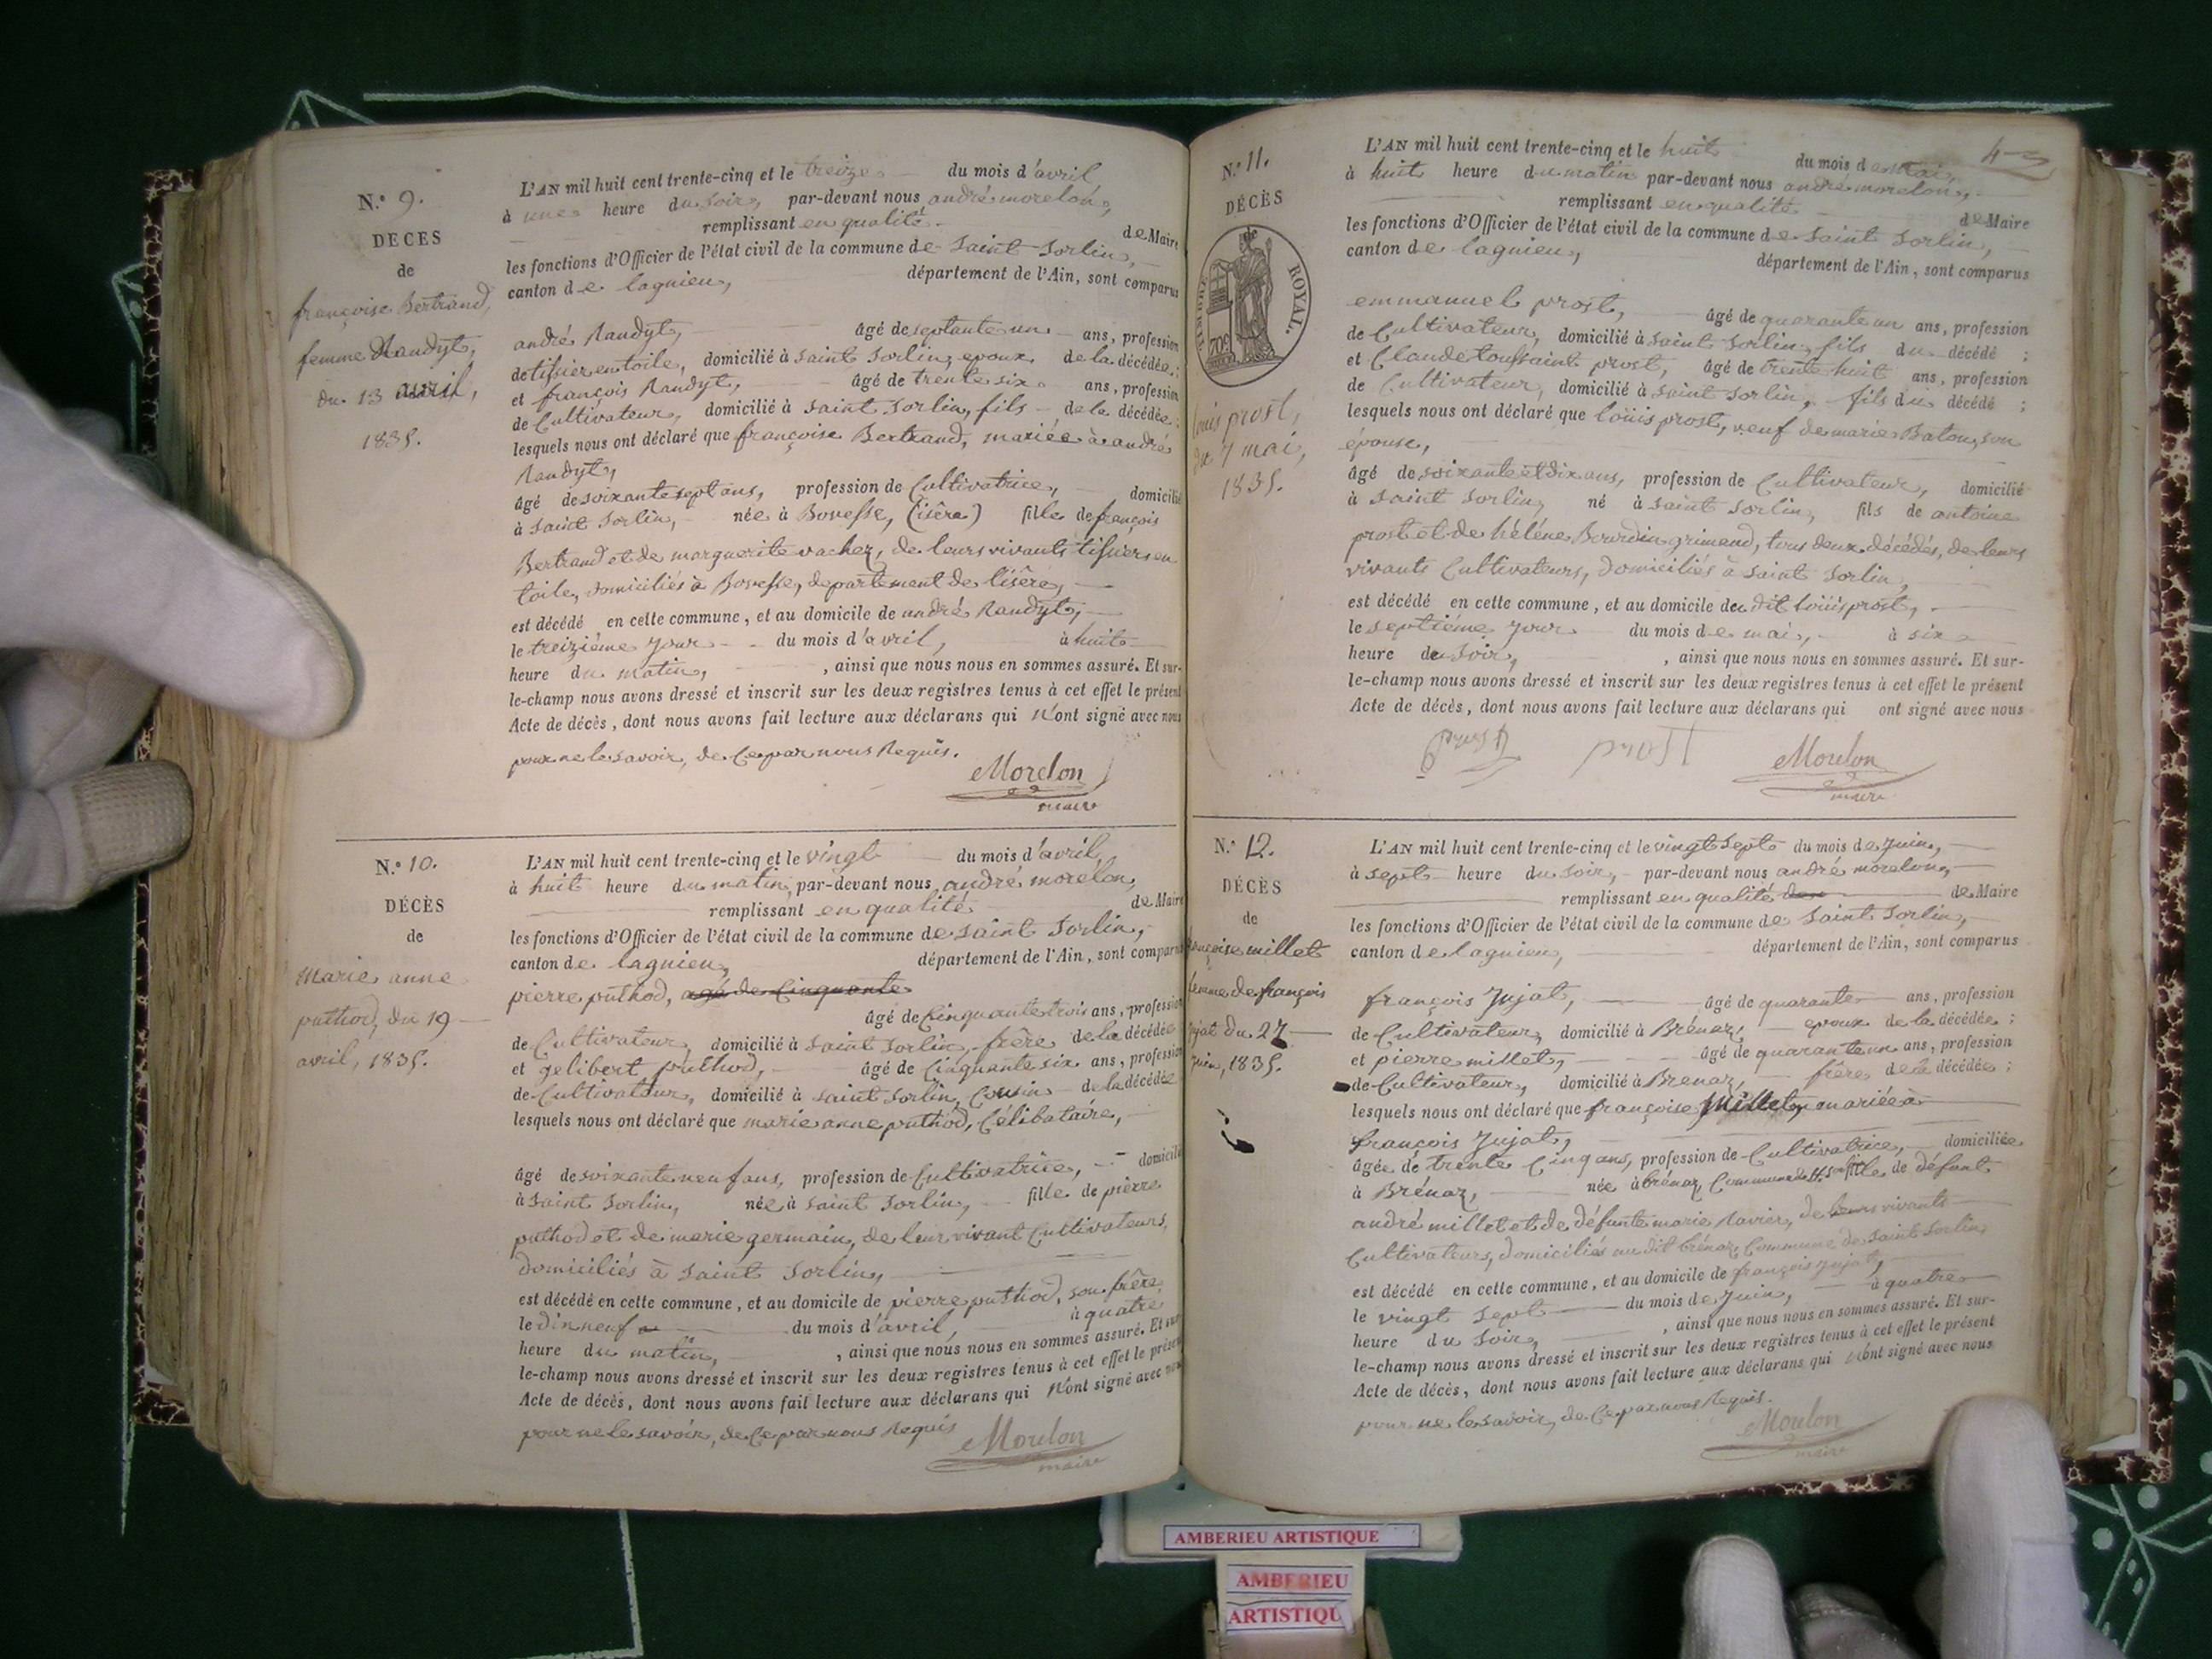 N.° 9.
DECES
de
françoise Bertrand,
femme Randyt,
du 13 avril,
1835.
L'AN mil huit cent trente-cinq et le treize du mois d'avril
à une heure du soir, par-devant nous andré morelon,
remplissant en qualité de Maire
les fonctions d'Officier de l'état civil de la commune de Saint Sorlin,
canton de lagnieu, département de l'Ain, sont comparus
andré Randyt, âgé de septante un ans, profession
de tissier en toile, domicilié à Saint Sorlin, epoux de la décédée ;
et françois Randyt, âgé de trente six ans, profession
de Cultivateur, domicilié à Saint Sorlin, fils de la décédée ;
lesquels nous ont déclaré que françoise Bertrand, mariée à andré
Randyt,
âgé de soixante sept ans, profession de Cultivatrice, domicilié
à Saint Sorlin, née à Bouesse, (isère) fille de françois
Bertrand et de marguerite vachez, de leurs vivants tissiers en
toile, domiciliés à Bouesse, département de l'isère,
est décédé en cette commune, et au domicile de andré Randyt,
le treizième jour du mois d'avril, à huit
heure du matin, , ainsi que nous nous en sommes assuré. Et sur-
le-champ nous avons dressé et inscrit sur les deux registres tenus à cet effet le présent
Acte de décès, dont nous avons fait lecture aux déclarans qui N'ont signé avec nous
pour ne le savoir, de Ce par nous Requis.
Morelon
maire
N.° 10.
DÉCÈS
de
Marie anne
puthod, du 19
avril, 1835.
L'AN mil huit cent trente-cinq et le vingt du mois d'avril,
à huit heure du matin, par-devant nous andré morelon,
remplissant en qualité de Maire
les fonctions d'Officier de l'état civil de la commune de Saint Sorlin,
canton de lagnieu, département de l'Ain, sont comparus
pierre puthod, agé de Cinquante
âgé de Cinquante trois ans, profession
de Cultivateur, domicilié à Saint Sorlin, frère de la décédée
et gelibert puthod, âgé de Cinquante six ans, profession
de Cultivateur, domicilié à Saint Sorlin, Cousin de la décédée
lesquels nous ont déclaré que marie anne puthod, Célibataire,
âgé de soixante neuf ans, profession de Cultivatrice, domicilié
à Saint Sorlin, née à Saint Sorlin, fille de pierre
puthod et de marie germain, de leur vivant Cultivateurs,
domiciliés à Saint Sorlin,
est décédé en cette commune, et au domicile de pierre puthod, son frère,
le dix neuf du mois d'avril, à quatre
heure du matin, , ainsi que nous nous en sommes assuré. Et sur-
le-champ nous avons dressé et inscrit sur les deux registres tenus à cet effet le présent
Acte de décès, dont nous avons fait lecture aux déclarans qui N'ont signé avec nous
pour ne le savoir, de Ce par nous Requis
Morelon
maire
N.° 11.
DÉCÈS
de
TIMBRE ROYAL.
louis prost,
du 7 mai,
1835.
L'AN mil huit cent trente-cinq et le huit du mois de mai,
à huit heure du matin par-devant nous andré morelon,
remplissant en qualité de Maire
les fonctions d'Officier de l'état civil de la commune de Saint Sorlin,
canton de lagnieu, département de l'Ain, sont comparus
emmanuel prost, âgé de quarante un ans, profession
de Cultivateur, domicilié à Saint Sorlin, fils du décédé ;
et Claude toussaint prost, âgé de trente huit ans, profession
de Cultivateur, domicilié à Saint Sorlin, fils du décédé ;
lesquels nous ont déclaré que loüis prost, veuf de marie Baton, son
épouse,
âgé de soixante et dix ans, profession de Cultivateur, domicilié
à Saint Sorlin, né à Saint Sorlin, fils de antoine
prost et de hélène Bourdin grimend, tous deux décédés, de leurs
vivants Cultivateurs, domiciliés à Saint Sorlin,
est décédé en cette commune, et au domicile du dit loüis prost,
le septième jour du mois de mai, à six
heure du soir, , ainsi que nous nous en sommes assuré. Et sur-
le-champ nous avons dressé et inscrit sur les deux registres tenus à cet effet le présent
Acte de décès, dont nous avons fait lecture aux déclarans qui ont signé avec nous
prost prost Morelon
maire
N.° 12.
DÉCÈS
de
françoise millet
femme de françois
Jujat du 27
juin, 1835.
L'AN mil huit cent trente-cinq et le vingt sept du mois de Juin,
à sept heure du soir, par-devant nous andré morelon,
remplissant en qualité de Maire
les fonctions d'Officier de l'état civil de la commune de Saint Sorlin,
canton de lagnieu, département de l'Ain, sont comparus
françois Jujat, âgé de quarante ans, profession
de Cultivateur, domicilié à Brénaz, epoux de la décédée ;
et pierre millet, âgé de quarante un ans, profession
de Cultivateur, domicilié à Brenaz, frère de la décédée ;
lesquels nous ont déclaré que françoise Millet, mariée à
françois Jujat,
âgée de trente Cinq ans, profession de Cultivatrice, domiciliée
à Brénaz, née à brénaz Commune de St. Sorlin fille de défunt
andré millet et de défunte marie Ravier, de leurs vivants
Cultivateurs, domiciliés au dit brénaz Commune de Saint Sorlin,
est décédé en cette commune, et au domicile de françois Jujat,
le vingt sept du mois de Juin, à quatre
heure du soir, , ainsi que nous nous en sommes assuré. Et sur-
le-champ nous avons dressé et inscrit sur les deux registres tenus à cet effet le présent
Acte de décès, dont nous avons fait lecture aux déclarans qui N'ont signé avec nous
pour ne le savoir, de Ce par nous Requis.
Morelon
maire
AMBERIEU ARTISTIQUE
AMBERIEU
ARTISTIQU